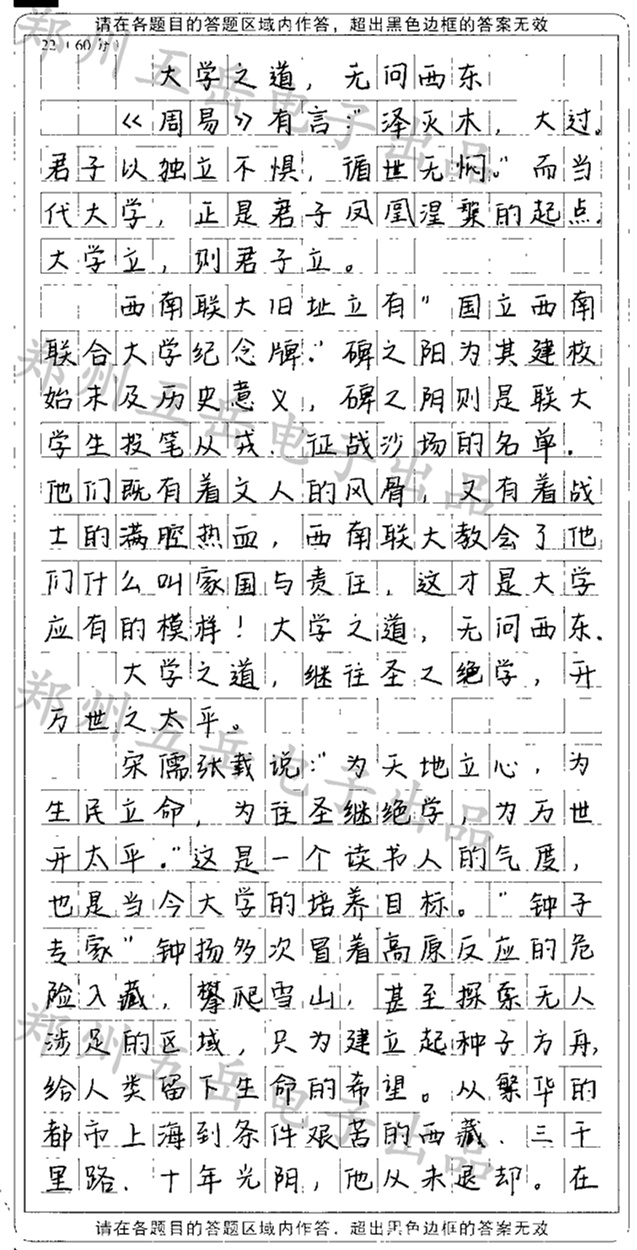 请在各题目的答题区域内作答，超出黑色边框的答案无效
22（60分）
大学之道，无问西东
《周易》有言：“泽灭木，大过。
君子以独立不惧，循世无悶。”而当
代大学，正是君子凤凰涅槃的起点.
大学立，则君子立。
西南联大旧址立有“国立西南
联合大学纪念牌.”碑之阳为其建校
始末及历史意义，碑之阴则是联大
学生投笔从戎、征战沙场的名单.
他们既有着文人的风骨，又有着战
士的满腔热血，西南联大教会了他
们什么叫家国与责任，这才是大学
应有的模样！大学之道，无问西东.
大学之道，继往圣之绝学，开
万世之太平。
宋儒张载说：“为天地立心，为
生民立命，为往圣继绝学，为万世
开太平.”这是一个读书人的气度，
也是当今大学的培养目标。“钟子
专家”钟扬多次冒着高原反应的危
险入藏，攀爬雪山，甚至探索无人
涉足的区域，只为建立起种子方舟，
给人类留下生命的希望。从繁华的
都市上海到条件艰苦的西藏、三千
里路、十年光阴，他从未退却。在
请在各题目的答题区域内作答，超出黑色边框的答案无效
郑州五岳电子出品
郑州五岳电子出品
郑州五岳电子出品
郑州五岳电子出品